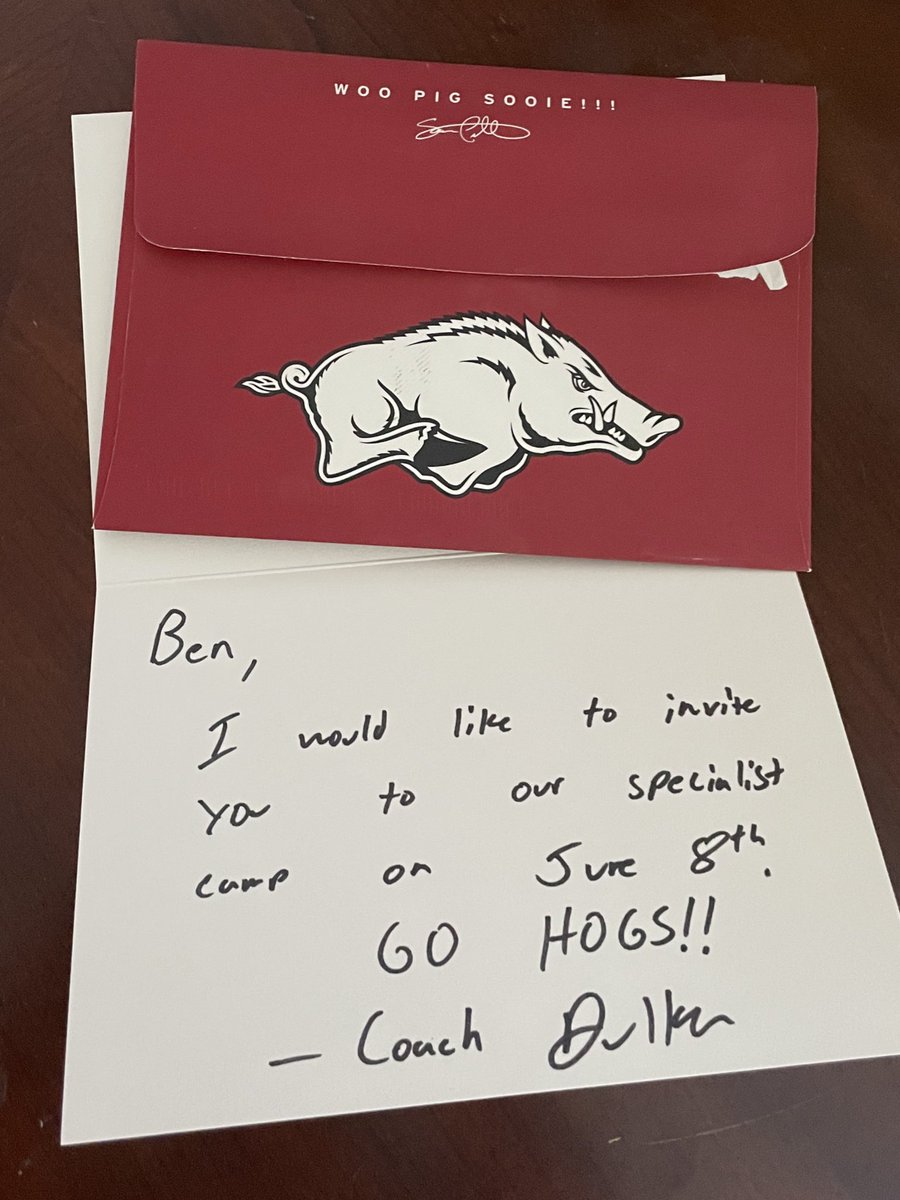 WOO PIG SOOIE!!!
Ben,
I would like to invite
you to our specialist
camp on June 8th.
GO HOGS!!
- Coach